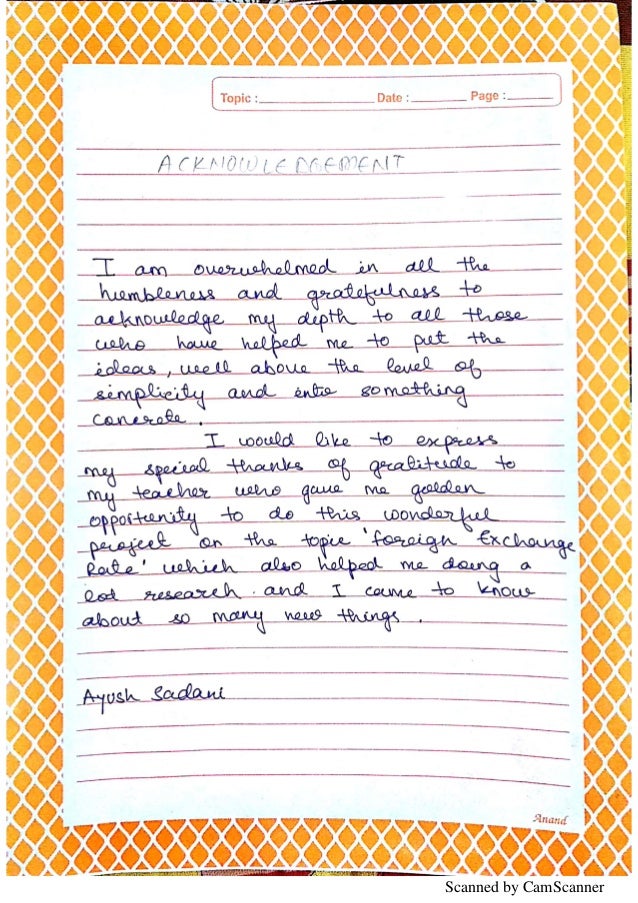 Topic : Date : Page :
ACKNOWLEDGEMENT
I am overwhelmed in all the
humbleness and gratefulness to
acknowledge my depth to all those
who have helped me to put the
ideas, well above the level of
simplicity and into something
concrete.
I would like to express
my special thanks of gratitude to
my teacher who gave me golden
opportunity to do this wonderful
project on the topic 'foreign Exchange
Rate' which also helped me doing a
lot research and I came to know
about so many new things .
Ayush Sadani
Anand
Scanned by CamScanner